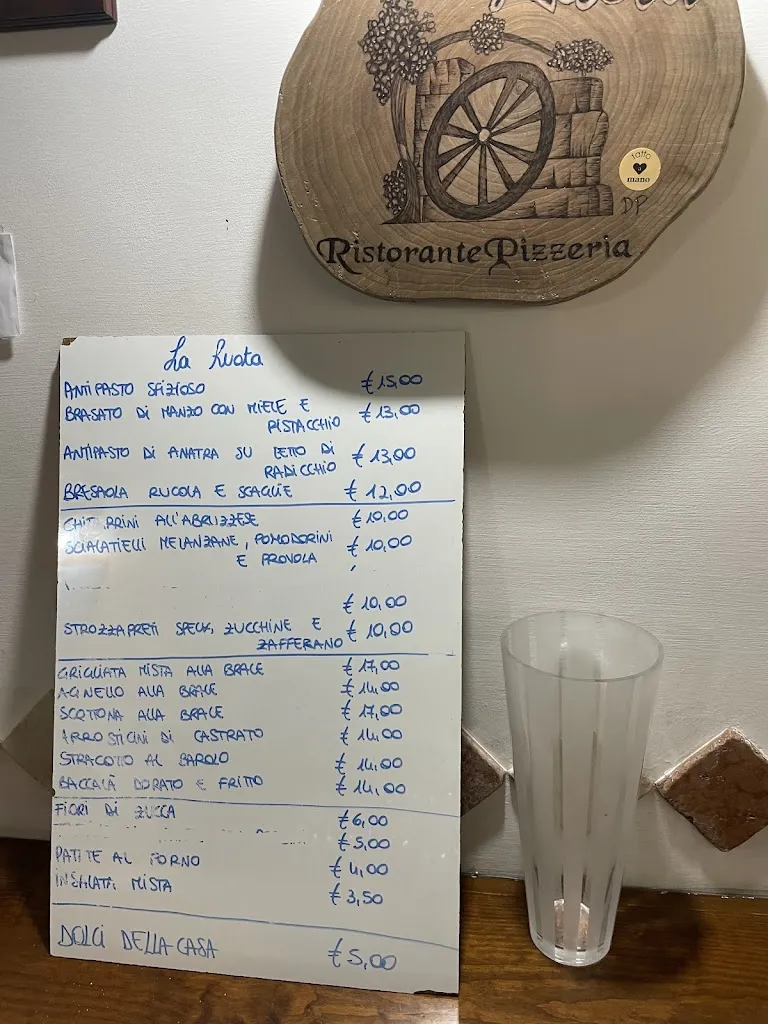 Ristorante Pizzeria
fatto
a
mano
DP
La Ruota
ANTIPASTO SFIZIOSO €15,00
BRASATO DI MANZO CON MIELE E €13,00
PISTACCHIO
ANTIPASTO DI ANATRA SU LETTO DI €13,00
RADICCHIO
BRESAOLA RUCOLA E SCAGLIE €12,00
CHIT RRINI ALL'ABRUZZESE €10,00
SCIALATIELLI MELANZANE, POMODORINI €10,00
E PROVOLA
€10,00
STROZZAPRETI SPECK, ZUCCHINE E €10,00
ZAFFERANO
GRIGLIATA MISTA ALLA BRACE €17,00
AGNELLO ALLA BRACE €14,00
SCOTTONA ALLA BRACE €17,00
ARROSTICINI DI CASTRATO €14,00
STRACOTTO AL BAROLO €14,00
BACCALÀ DORATO E FRITTO €14,00
FIORI DI ZUCCA €6,00
€5,00
PATATE AL FORNO €4,00
INSALATA MISTA €3,50
DOLCI DELLA CASA €5,00